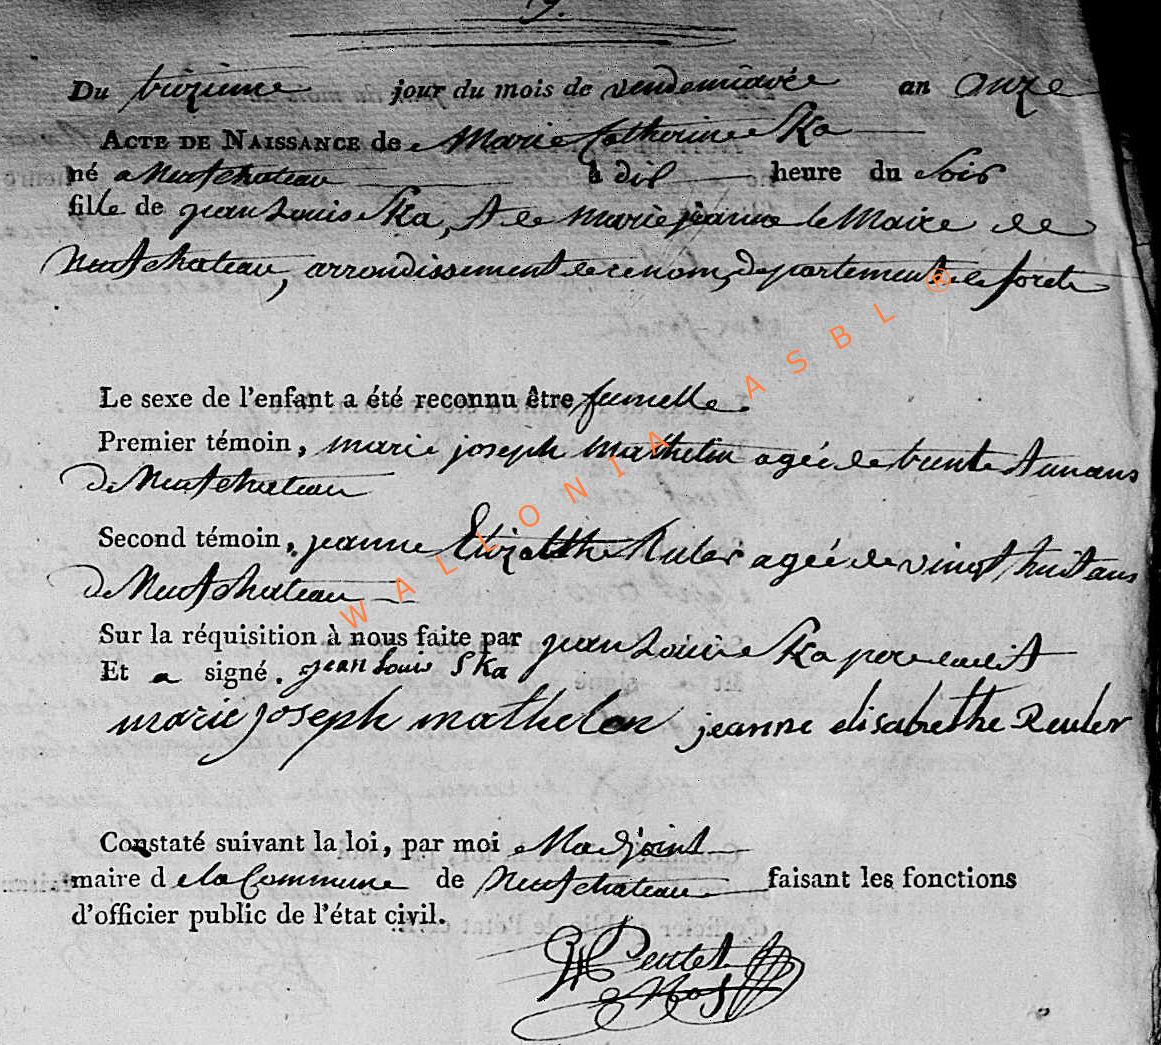 9.
Du treizieme jour du mois de vendemiaire an onze
ACTE DE NAISSANCE de Marie Catherine Ska
né a Neufchateau à dix heure du soir
fille de jean Louis Ska, et de Marie jeanne le Maire de
Neufchateau, arrondissement de ce nom, departement de forets
Le sexe de l'enfant a été reconnu être femelle.
Premier témoin, marie joseph Mathelin agée de trente et un ans
De Neufchateau
Second témoin, jeanne Elizabethe Reuler agée de vingt huit ans
De Neufchateau
Sur la réquisition à nous faite par jean Louis Ska pere audit
Et a signé. jean Louis Ska
marie joseph mathelon jeanne elisabethe Reuler
Constaté suivant la loi, par moi adjoint
maire de la Commune de Neufchateau faisant les fonctions
d'officier public de l'état civil.
WALLONIA ASBL ®